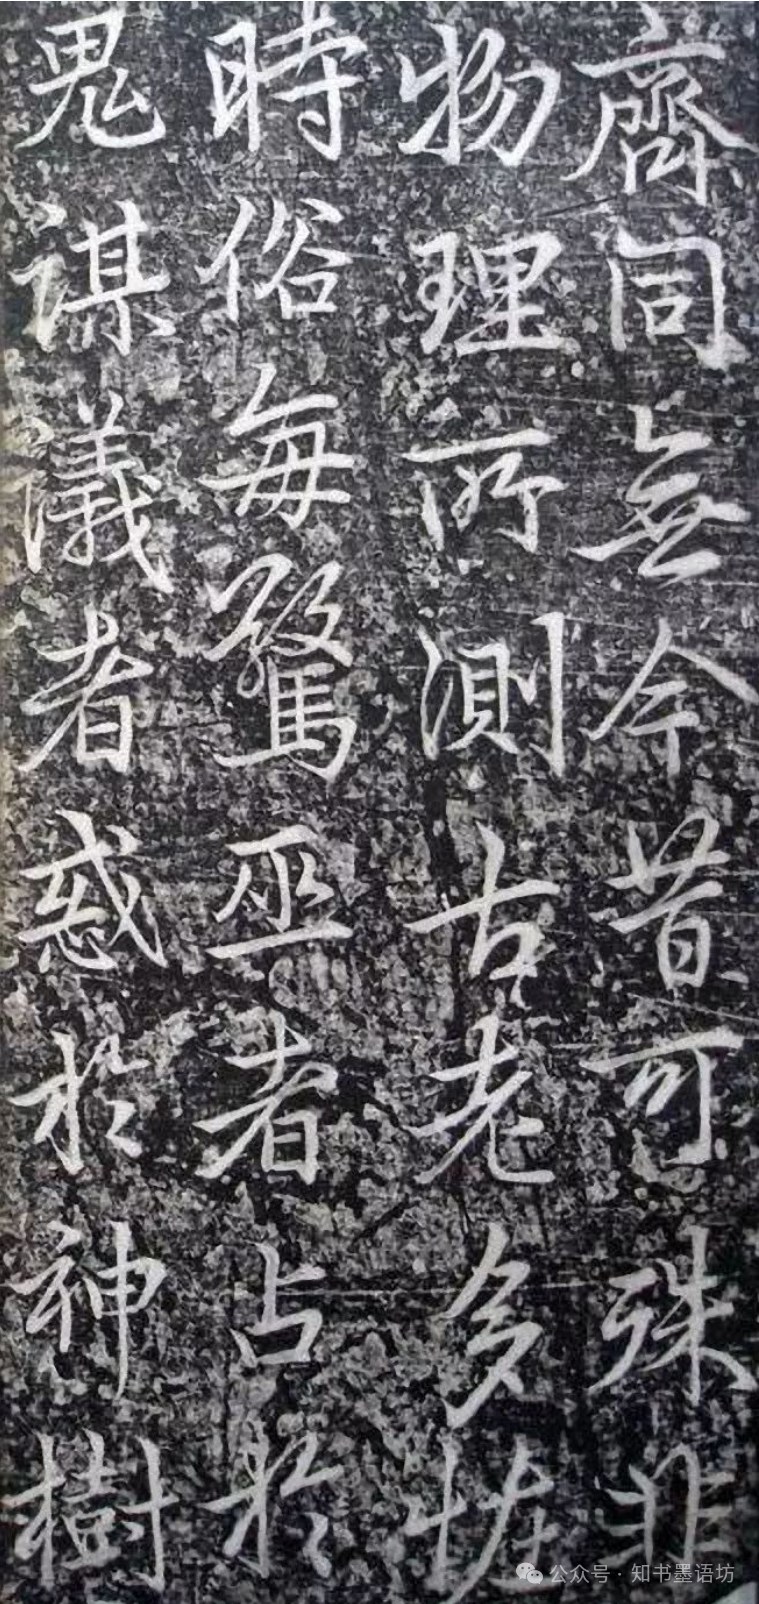 齊同無今昔可殊非
物理所測古老多恠
時俗每驚巫者占於
鬼謀議者惑於神樹
公众号·知书墨语坊